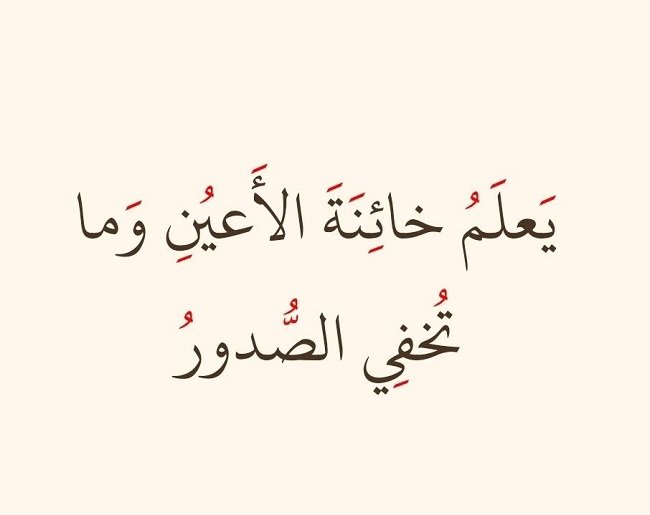 يَعلَمُ خائِنَةَ الأَعيُنِ وَما
تُخفِي الصُّدورُ